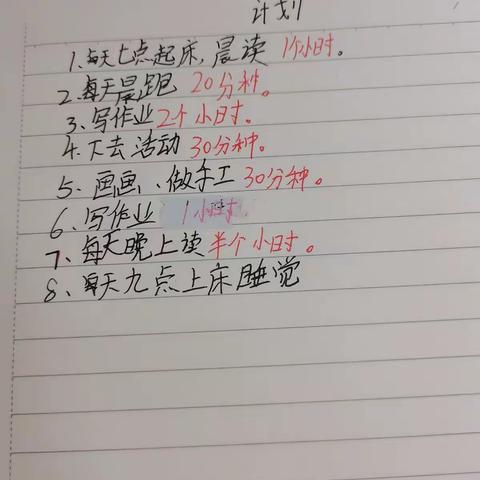 计划
1、每天七点起床,晨读 1个小时。
2、每天晨跑 20分钟。
3、写作业2个小时。
4、下去活动30分钟。
5、画画、做手工30分钟。
6、写作业 1小时.
7、每天晚上读半个小时。
8、每天九点上床睡觉